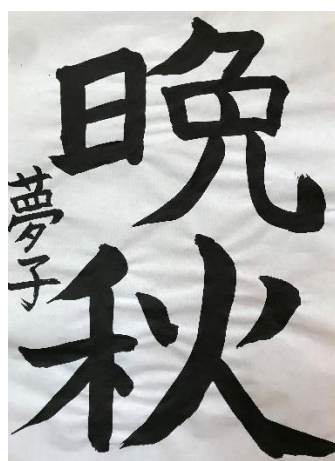 晩秋
夢子